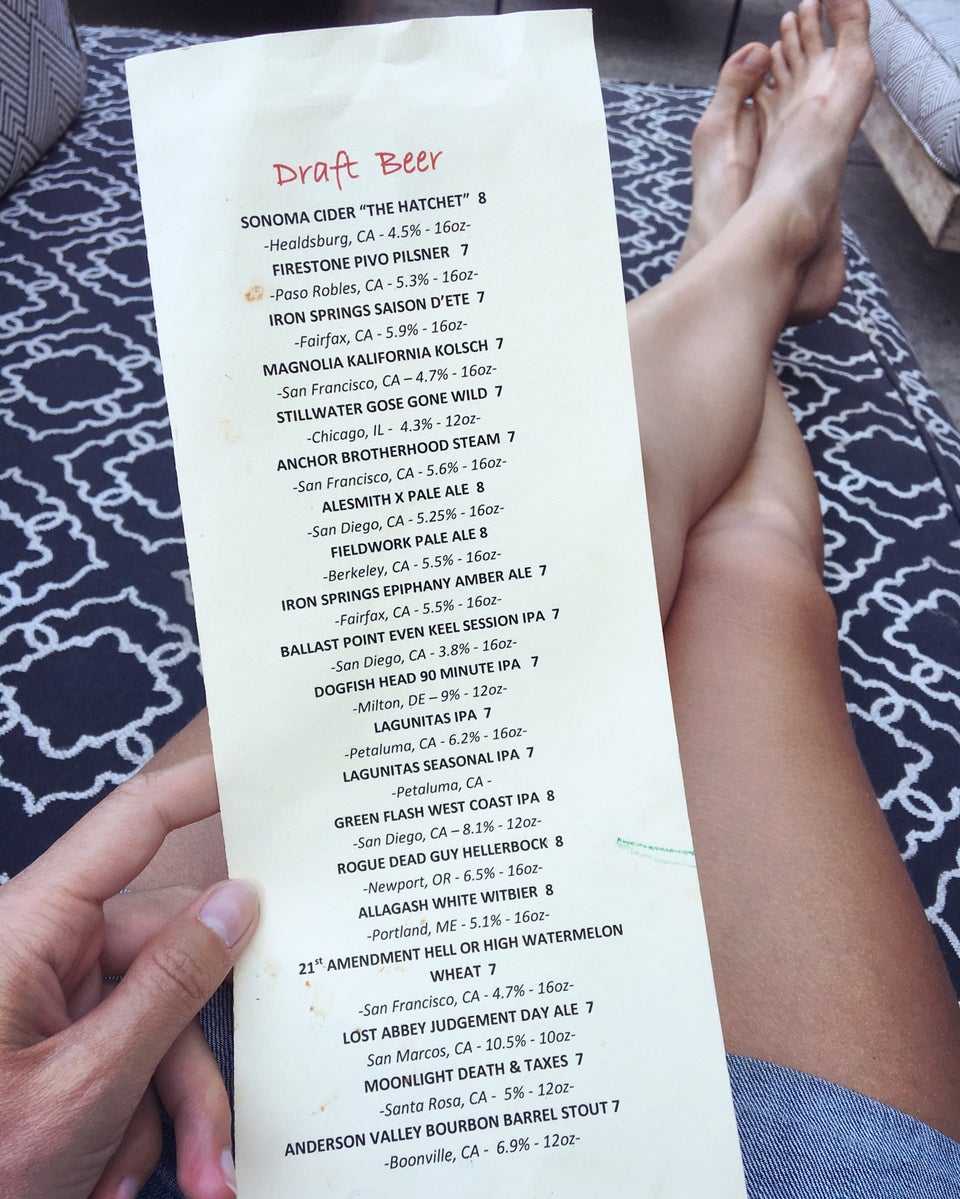 Draft Beer
SONOMA CIDER “THE HATCHET” 8
-Healdsburg, CA - 4.5% - 16oz-
FIRESTONE PIVO PILSNER 7
-Paso Robles, CA - 5.3% - 16oz-
IRON SPRINGS SAISON D’ETE 7
-Fairfax, CA - 5.9% - 16oz-
MAGNOLIA KALIFORNIA KOLSCH 7
-San Francisco, CA – 4.7% - 16oz-
STILLWATER GOSE GONE WILD 7
-Chicago, IL - 4.3% - 12oz-
ANCHOR BROTHERHOOD STEAM 7
-San Francisco, CA - 5.6% - 16oz-
ALESMITH X PALE ALE 8
-San Diego, CA - 5.25% - 16oz-
FIELDWORK PALE ALE 8
-Berkeley, CA - 5.5% - 16oz-
IRON SPRINGS EPIPHANY AMBER ALE 7
-Fairfax, CA - 5.5% - 16oz-
BALLAST POINT EVEN KEEL SESSION IPA 7
-San Diego, CA - 3.8% - 16oz-
DOGFISH HEAD 90 MINUTE IPA 7
-Milton, DE – 9% - 12oz-
LAGUNITAS IPA 7
-Petaluma, CA - 6.2% - 16oz-
LAGUNITAS SEASONAL IPA 7
-Petaluma, CA -
GREEN FLASH WEST COAST IPA 8
-San Diego, CA – 8.1% - 12oz-
ROGUE DEAD GUY HELLERBOCK 8
-Newport, OR - 6.5% - 16oz-
ALLAGASH WHITE WITBIER 8
-Portland, ME - 5.1% - 16oz-
21st AMENDMENT HELL OR HIGH WATERMELON
WHEAT 7
-San Francisco, CA - 4.7% - 16oz-
LOST ABBEY JUDGEMENT DAY ALE 7
San Marcos, CA - 10.5% - 10oz-
MOONLIGHT DEATH & TAXES 7
-Santa Rosa, CA - 5% - 12oz-
ANDERSON VALLEY BOURBON BARREL STOUT 7
-Boonville, CA - 6.9% - 12oz-